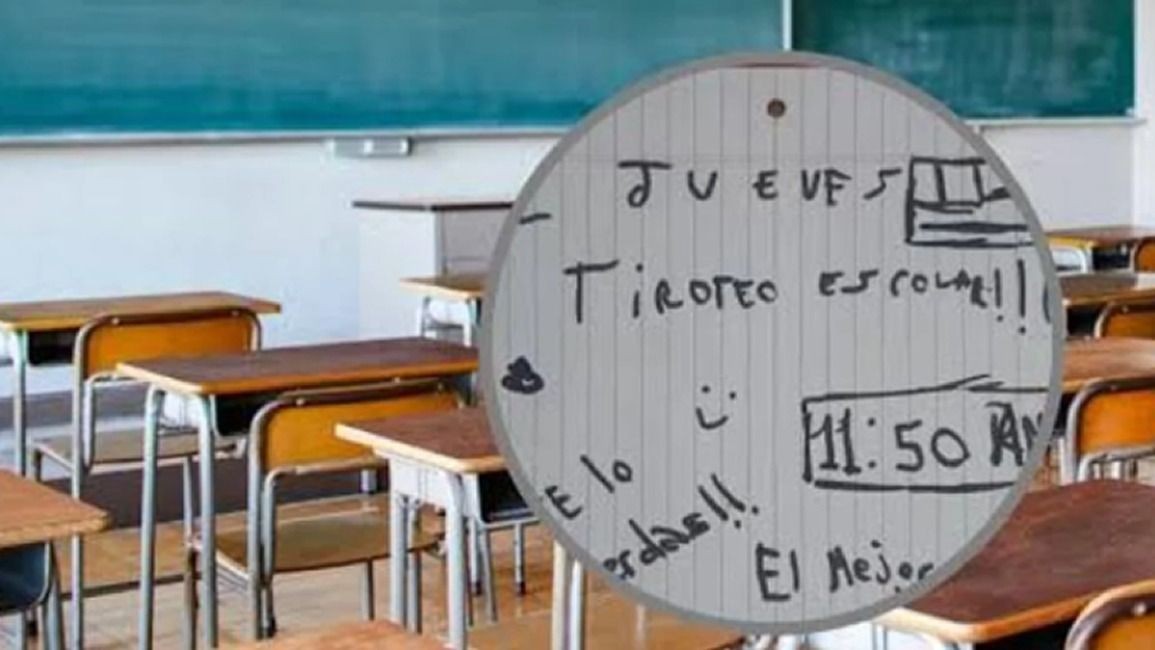 JUEVES
TIROTEO ESCOLAR!!!
11:50 AM
E lo
erdas!!!
El Mejor